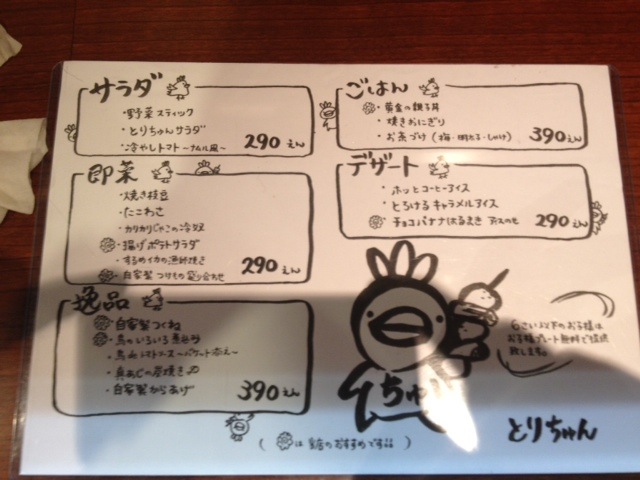 サラダ
・野菜スティック
・とりちゃんサラダ
・冷やしトマト〜ナムル風〜
290えん
即菜
・焼き枝豆
・たこわさ
・カリカリじゃこの冷奴
揚げポテトサラダ
・するめイカの漁師焼き
自家製つけもの盛り合わせ
290えん
逸品
自家製つくね
鳥のいろいろ
・バケット添え〜
・真あじの
・自家製からあげ
390えん
ごはん
黄金の親子丼
・焼きおにぎり
・お茶づけ(梅・明太子・しゃけ)
390えん
デザート
・ホッとコーヒーアイス
・とろけるキャラメルアイス
チョコバナナはるまき アイスのせ
290えん
ちゅん
6さい以下のお子様は
お子様プレート無料で提供
致します。
とりちゅん
( は 当店のおすすめです品 )